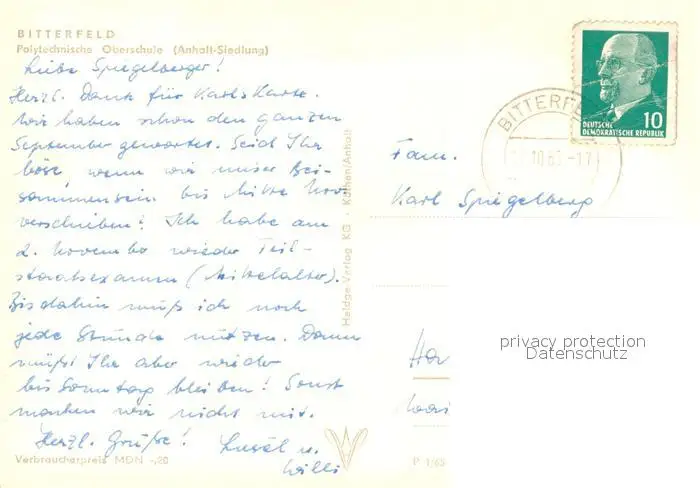 BITTERFELD
Polytechnische Oberschule (Anhalt-Siedlung)
Liebe Spiegelberger!
Herzl. Dank für Karls Karte.
Wir haben schon den ganzen
September gewartet. Seid Ihr
böse, wenn wir unser Bei-
sammensein bis Mitte Nov.
verschieben? Ich habe am
2. November wieder Teil-
staatsexamen (Mittelalter).
Bis dahin muß ich noch
jede Stunde nützen. Dann
müßt Ihr aber wieder
bis Sonntag bleiben! Sonst
machen wir nicht mit.
Herzl. Grüße! Lusel u.
Willi
Verbraucherpreis MDN -,20
Heldge Verlag KG · Köthen/Anhalt
P 1/65
BITTERFE
10
DEUTSCHE
DEMOKRATISCHE REPUBLIK
Fam.
Karl Spiegelberg
privacy protection
Datenschutz